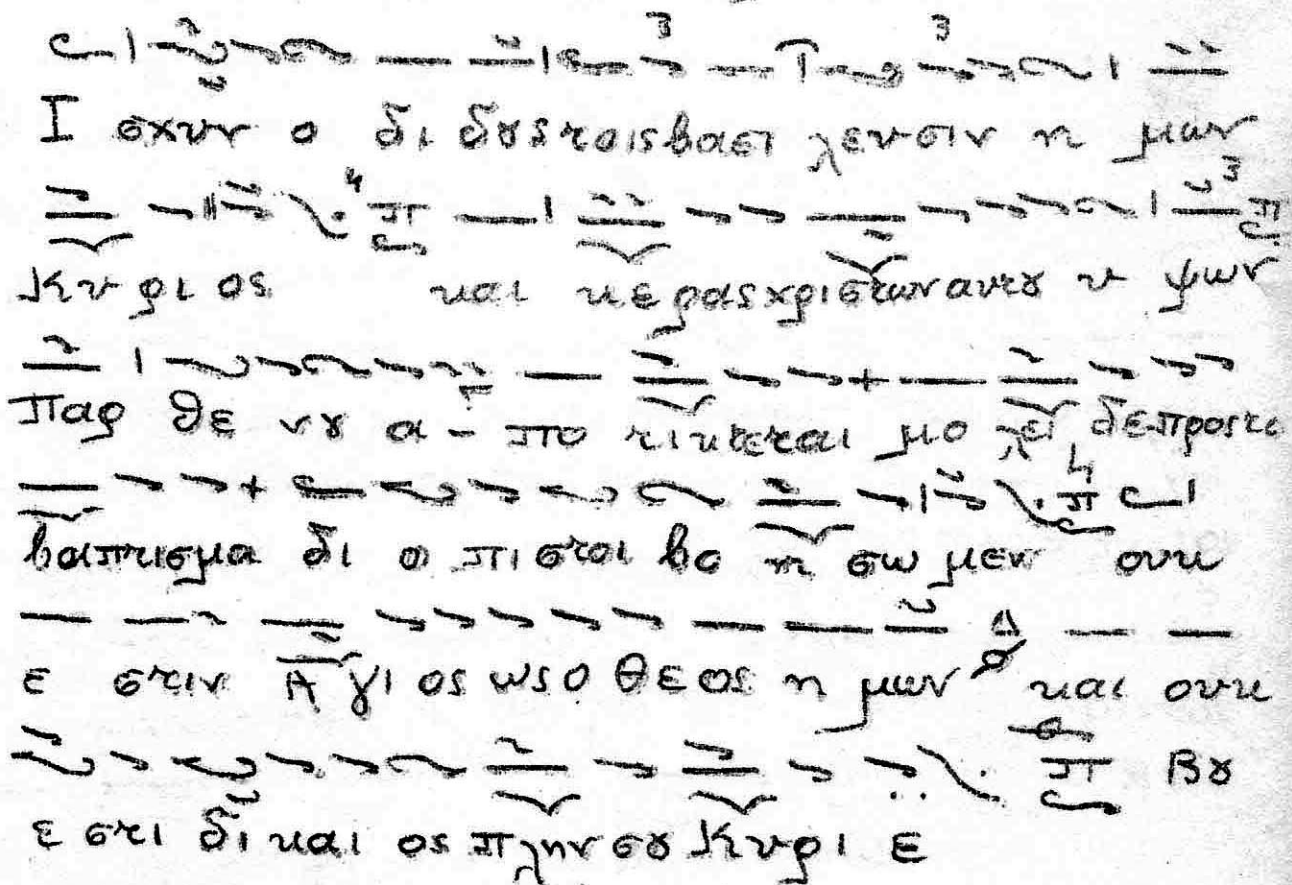 Ι σχυν ο δι δȣς τοις βασι λευσιν η μων
Κυ ρι ος και κε ρας χρι στων αυτȣ υ ψων
Παρ θε νȣ α - πο τικτεται μο λει δε προς το
βαπτισμα δι ο πι στοι βο η σω μεν ουκ
ε στιν Α γι ος ως ο θε ος η μων και ουκ
ε στι δι και ος πλην σȣ Κυ ρι ε